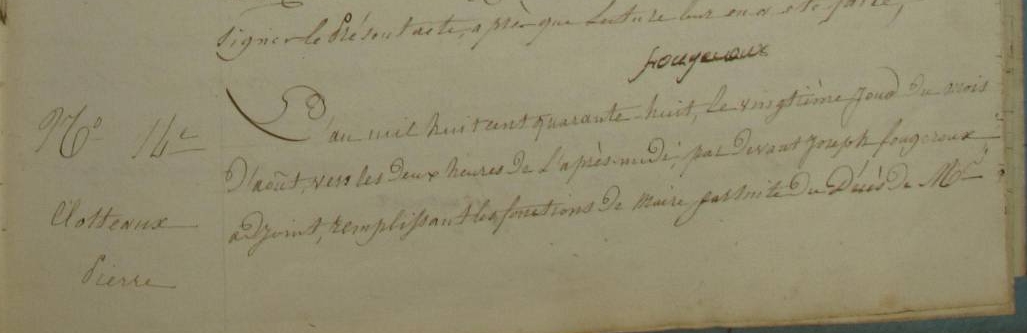 signer le Présent acte, après que lecture leur en a été faite,
fougeroux
N.° 14.e
L'an mil huit cent quarante-huit, le vingtième jour du mois
D'août, vers les deux heures de l'après-midi, par devant Joseph fougeroux
adjoint, remplissant les fonctions de Maire par suite du Décès de Mr
Clotteaux
Pierre